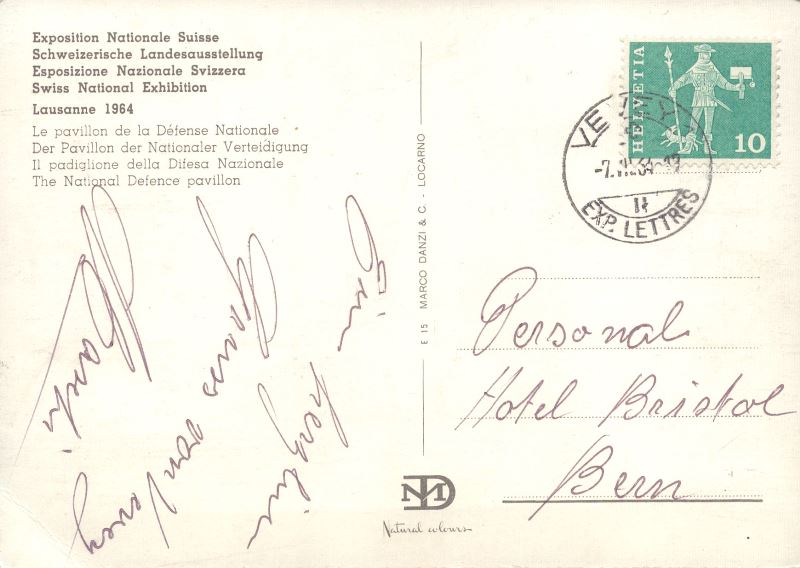 Exposition Nationale Suisse
Schweizerische Landesausstellung
Esposizione Nazionale Svizzera
Swiss National Exhibition
Lausanne 1964
Le pavillon de la Défense Nationale
Der Pavillon der Nationaler Verteidigung
Il padiglione della Difesa Nazionale
The National Defence pavilion
Ein
von Vevey
E 15 MARCO DANZI & C. - LOCARNO
Natural colours
HELVETIA
10
VEVEY 1
EXP. LETTRES
Personal
Hotel Bristol
Bern